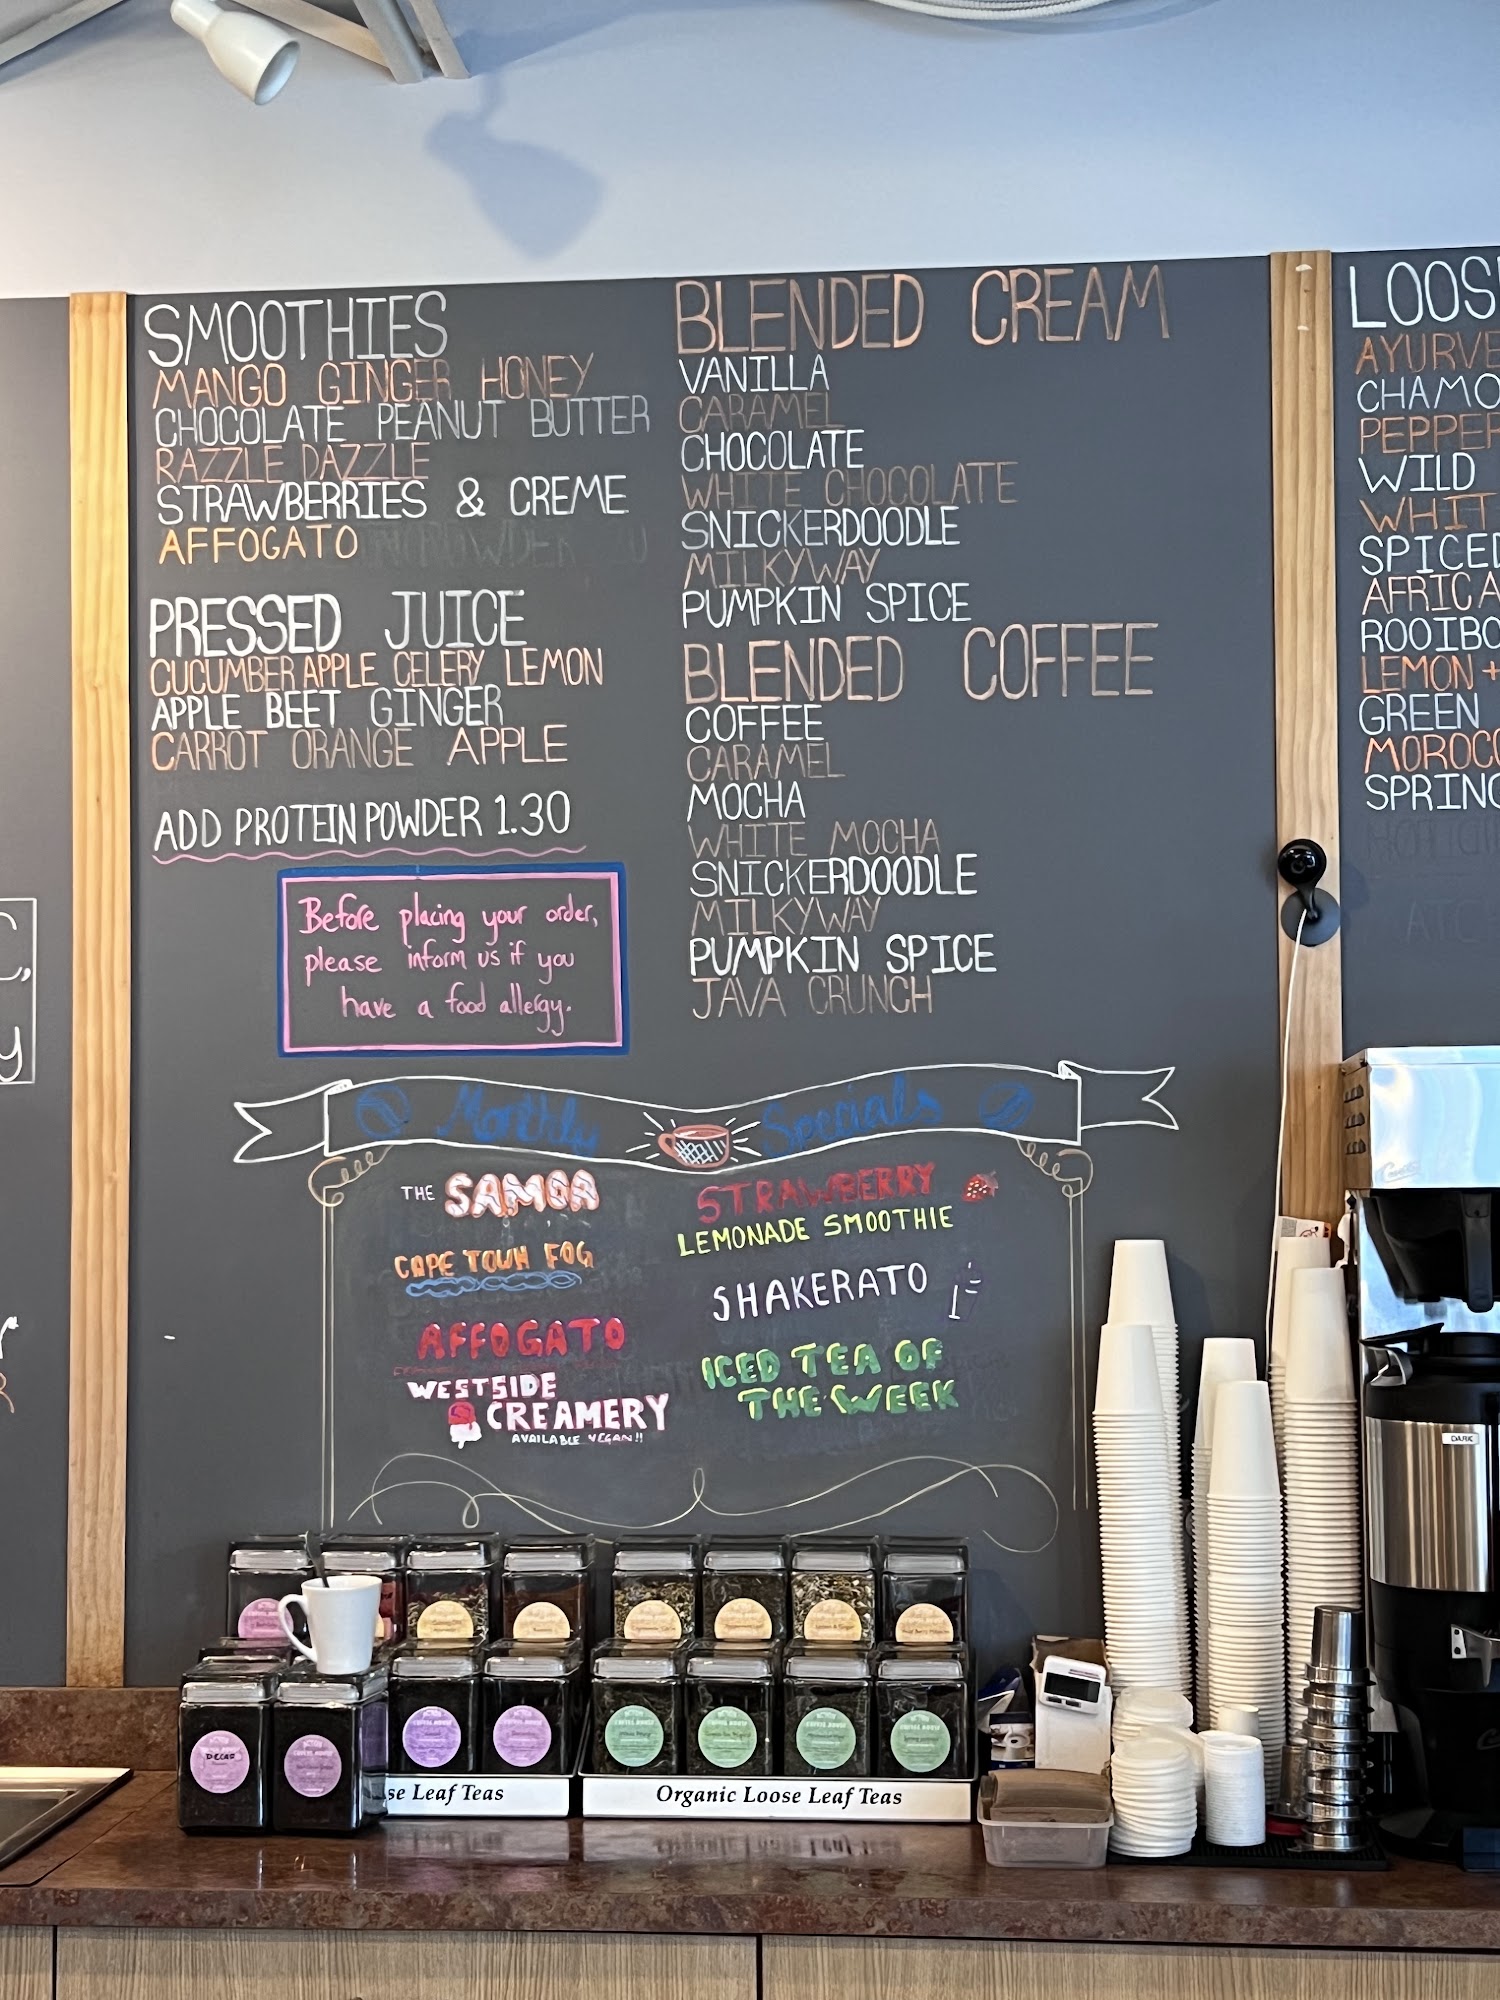 SMOOTHIES
MANGO GINGER HONEY
CHOCOLATE PEANUT BUTTER
RAZZLE DAZZLE
STRAWBERRIES & CREME
AFFOGATO
PRESSED JUICE
CUCUMBER APPLE CELERY LEMON
APPLE BEET GINGER
CARROT ORANGE APPLE
ADD PROTEIN POWDER 1.30
Before placing your order,
please inform us if you
have a food allergy.
BLENDED CREAM
VANILLA
CARAMEL
CHOCOLATE
WHITE CHOCOLATE
SNICKERDOODLE
MILKYWAY
PUMPKIN SPICE
BLENDED COFFEE
COFFEE
CARAMEL
MOCHA
WHITE MOCHA
SNICKERDOODLE
MILKYWAY
PUMPKIN SPICE
JAVA CRUNCH
Monthly Specials
THE SAMOA
CAPE TOWN FOG
AFFOGATO
WESTSIDE
CREAMERY
AVAILABLE VEGAN!!
STRAWBERRY
LEMONADE SMOOTHIE
SHAKERATO
ICED TEA OF
THE WEEK
LOOS
AYURVE
CHAMO
PEPPER
WILD
WHIT
SPICED
AFRICA
ROOIBO
LEMON +
GREEN
MOROCC
SPRING
DARK
DECAF
COFFEE HOUSE
COFFEE HOUSE
COFFEE HOUSE
COFFEE HOUSE
COFFEE HOUSE
COFFEE HOUSE
se Leaf Teas
Organic Loose Leaf Teas